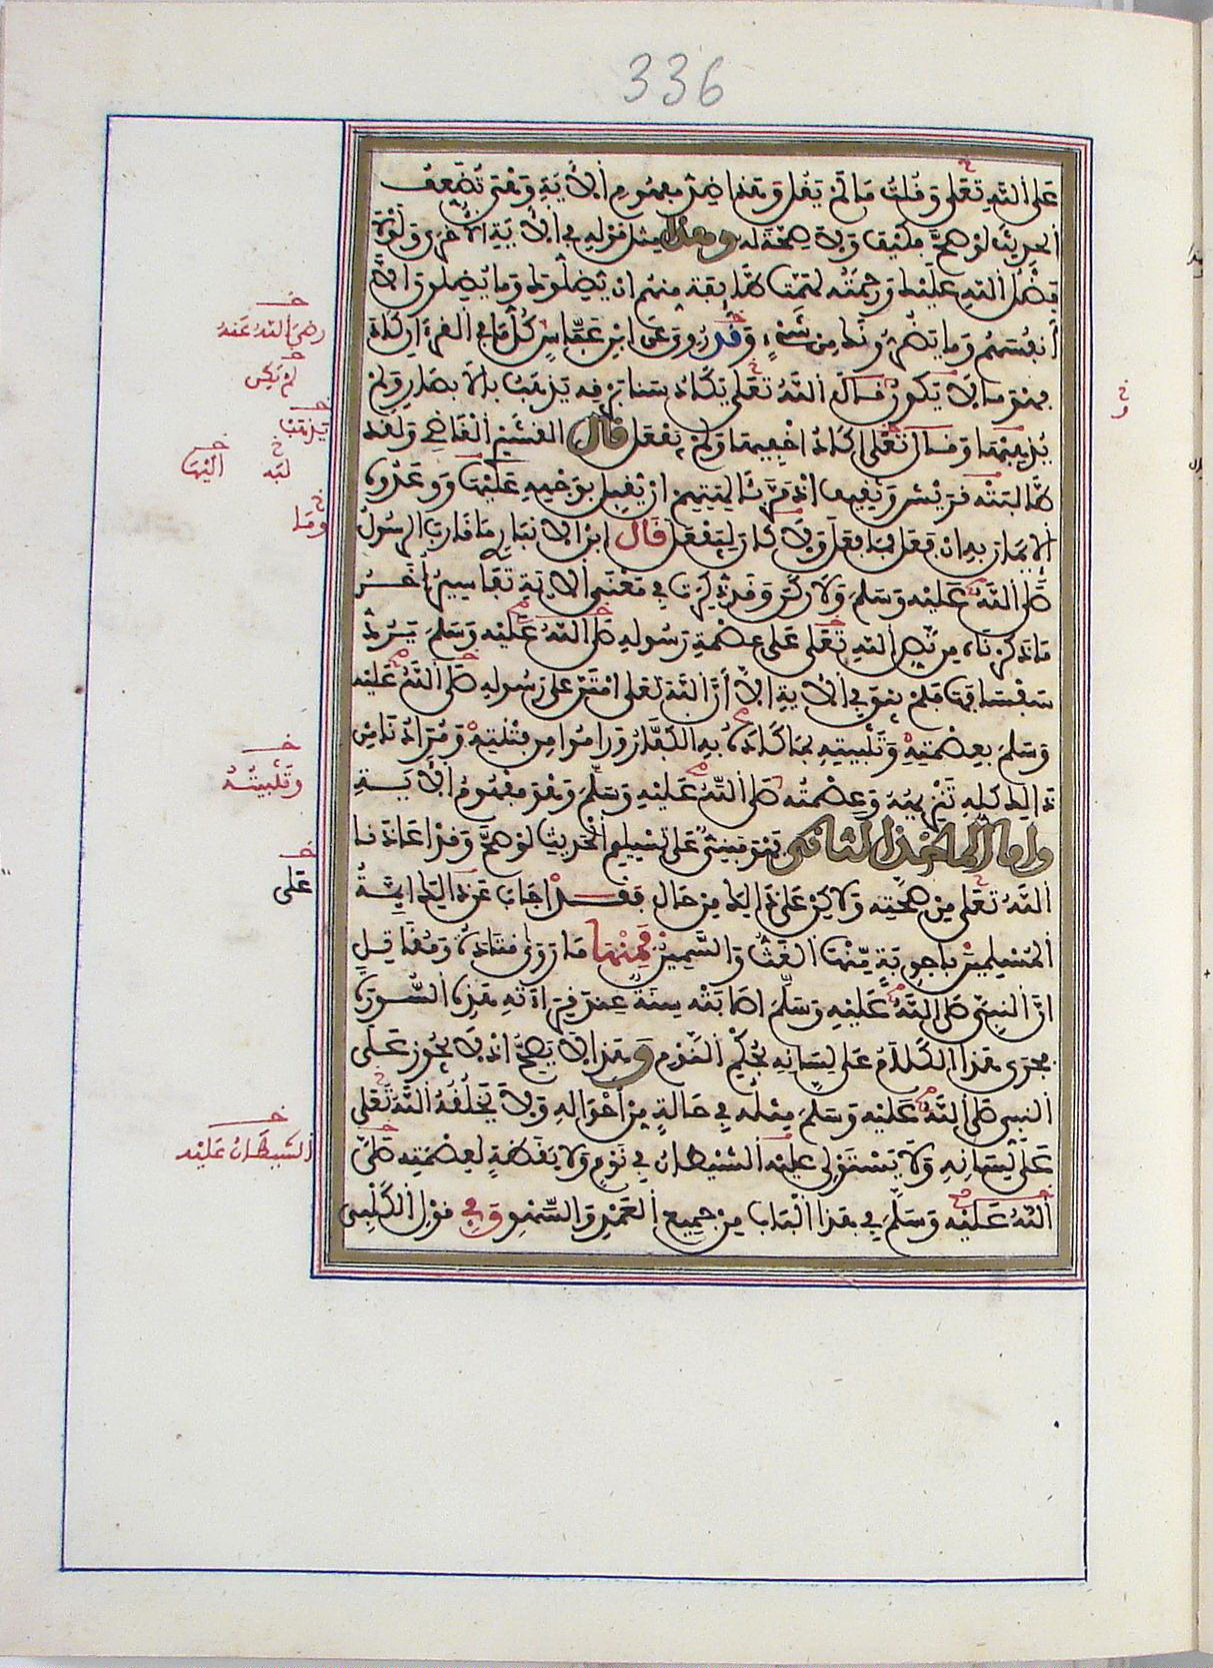 336
على الله تعلى وقلت ما لم يقل وهذا ضد مفهوم الأية وهي تضعف
الحديث لو صح فكيف ولا صحة له وهذا مثل قوله في الأية الأخرى ولولا
فضل الله عليك ورحمته لهمت طائفة منهم ان يضلوك وما يضلون الا
أنفسهم وما يضرونك من شيء وقد روى عن ابن عباس كل ما في القرءان كاد
فهو ما لا يكون قال الله تعلى يكاد سنا برقه يذهب بالابصار ولم
يذهبها وقال تعلى اكاد اخفيها ولم يفعل قال القشيري القاضي ولقد
طالبته قريش وثقيف اذ مر بئالهتهم ان يقبل بوجهه عليها ووعدوه
الايمان به ان فعل فما فعل ولا كان ليفعل قال ابن الانباري ما قارب الرسول
صلى الله عليه وسلم ولا ركن وقد ذكرت في معنى الاية تفاسير أخر
ما ذكرناه من نص الله تعلى على عصمة رسوله صلى الله عليه وسلم ترد
سفسافها فلم يبق في الأية الا أن الله تعلى امتن على رسوله صلى الله عليه
وسلم بعصمته وتثبيته بما كاده به الكفار وراموا من فتنته ومرادنا من
ذالك كله تنزيهه وعصمته صلى الله عليه وسلم وهو مفهوم الأية
واما المأخذ الثاني فهو مبني على تسليم الحديث لو صح وقد اعاذنا
الله تعلى من صحته ولاكن على ذالك من حال فقد اجاب عن ذالك ايمة
المسلمين باجوبة منها الغث والسمين فمنها ما روى قتادة ومقاتل
ان النبي صلى الله عليه وسلم اصابته سنة عند قراءته هذه السورة
فجرى هذا الكلام على لسانه بحكم النوم وهذا لا يصح اذ لا يجوز على
النبي صلى الله عليه وسلم مثله في حالة من أحواله ولا يخلقه الله تعلى
على لسانه ولا يستولى عليه الشيطان في نوم ولا يقظة لعصمته صلى
الله عليه وسلم في هذا الباب من جميع العمد والسهو وفي قول الكلبي
خ
رضي الله عنه
خ
لم يكن
خ
يذهب
خ
اليها
خ
لبه
خ
وما
خ
وتثبيته
خ
على
خ
الشيطان عليه
خ
و